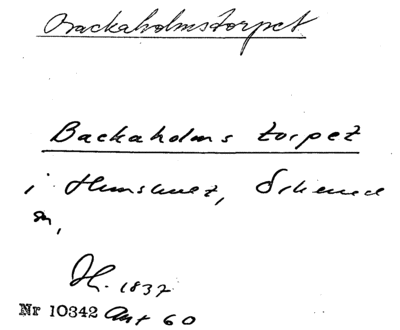 Backaholmstorpet
Backaholms torpet
i Hunshult, Schema
sn,
Jh. 1837
Nr 10342 Ant 60